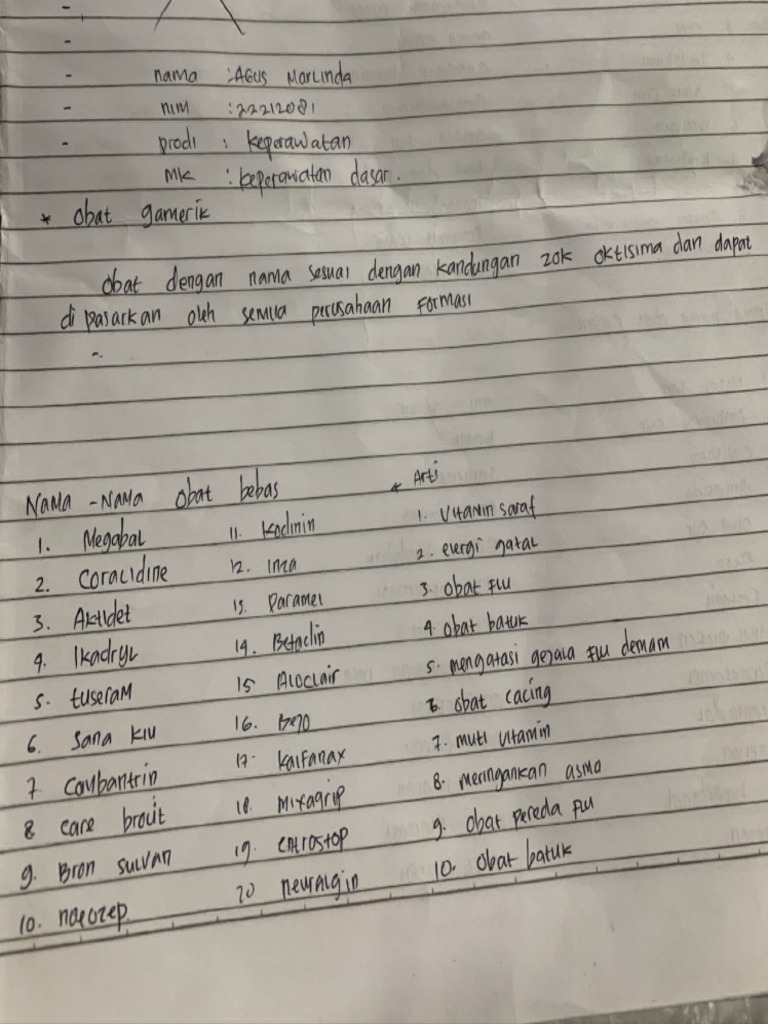 nama : AGUS Marlinda
nim : 22212081
prodi : keperawatan
mk : keperawatan dasar.
* obat gamerik
obat dengan nama sesuai dengan kandungan zok oktisima dan dapat
di pasarkan oleh semua perusahaan Formasi
NAMA - NAMA obat bebas * Arti
1. Megabal 11. Kodinin 1. Vitamin saraf
2. Coracidine 12. Inza 2. elergi gatal
3. Aktidet 13. Paramex 3. obat flu
4. Ikadryl 14. Betaclin 4. obat batuk
5. tuseram 15 Aloclair 5. mengatasi gejala flu demam
6. Sana Klu 16. 6. obat cacing
7 Combantrin 17. Kalfanax 7. muti vitamin
8 care brouit 18. Mixagrip 8. meringankan asma
9. Bron sulvan 19. entrostop 9. obat pereda flu
10. naeozep 20 neuralgin 10. obat batuk